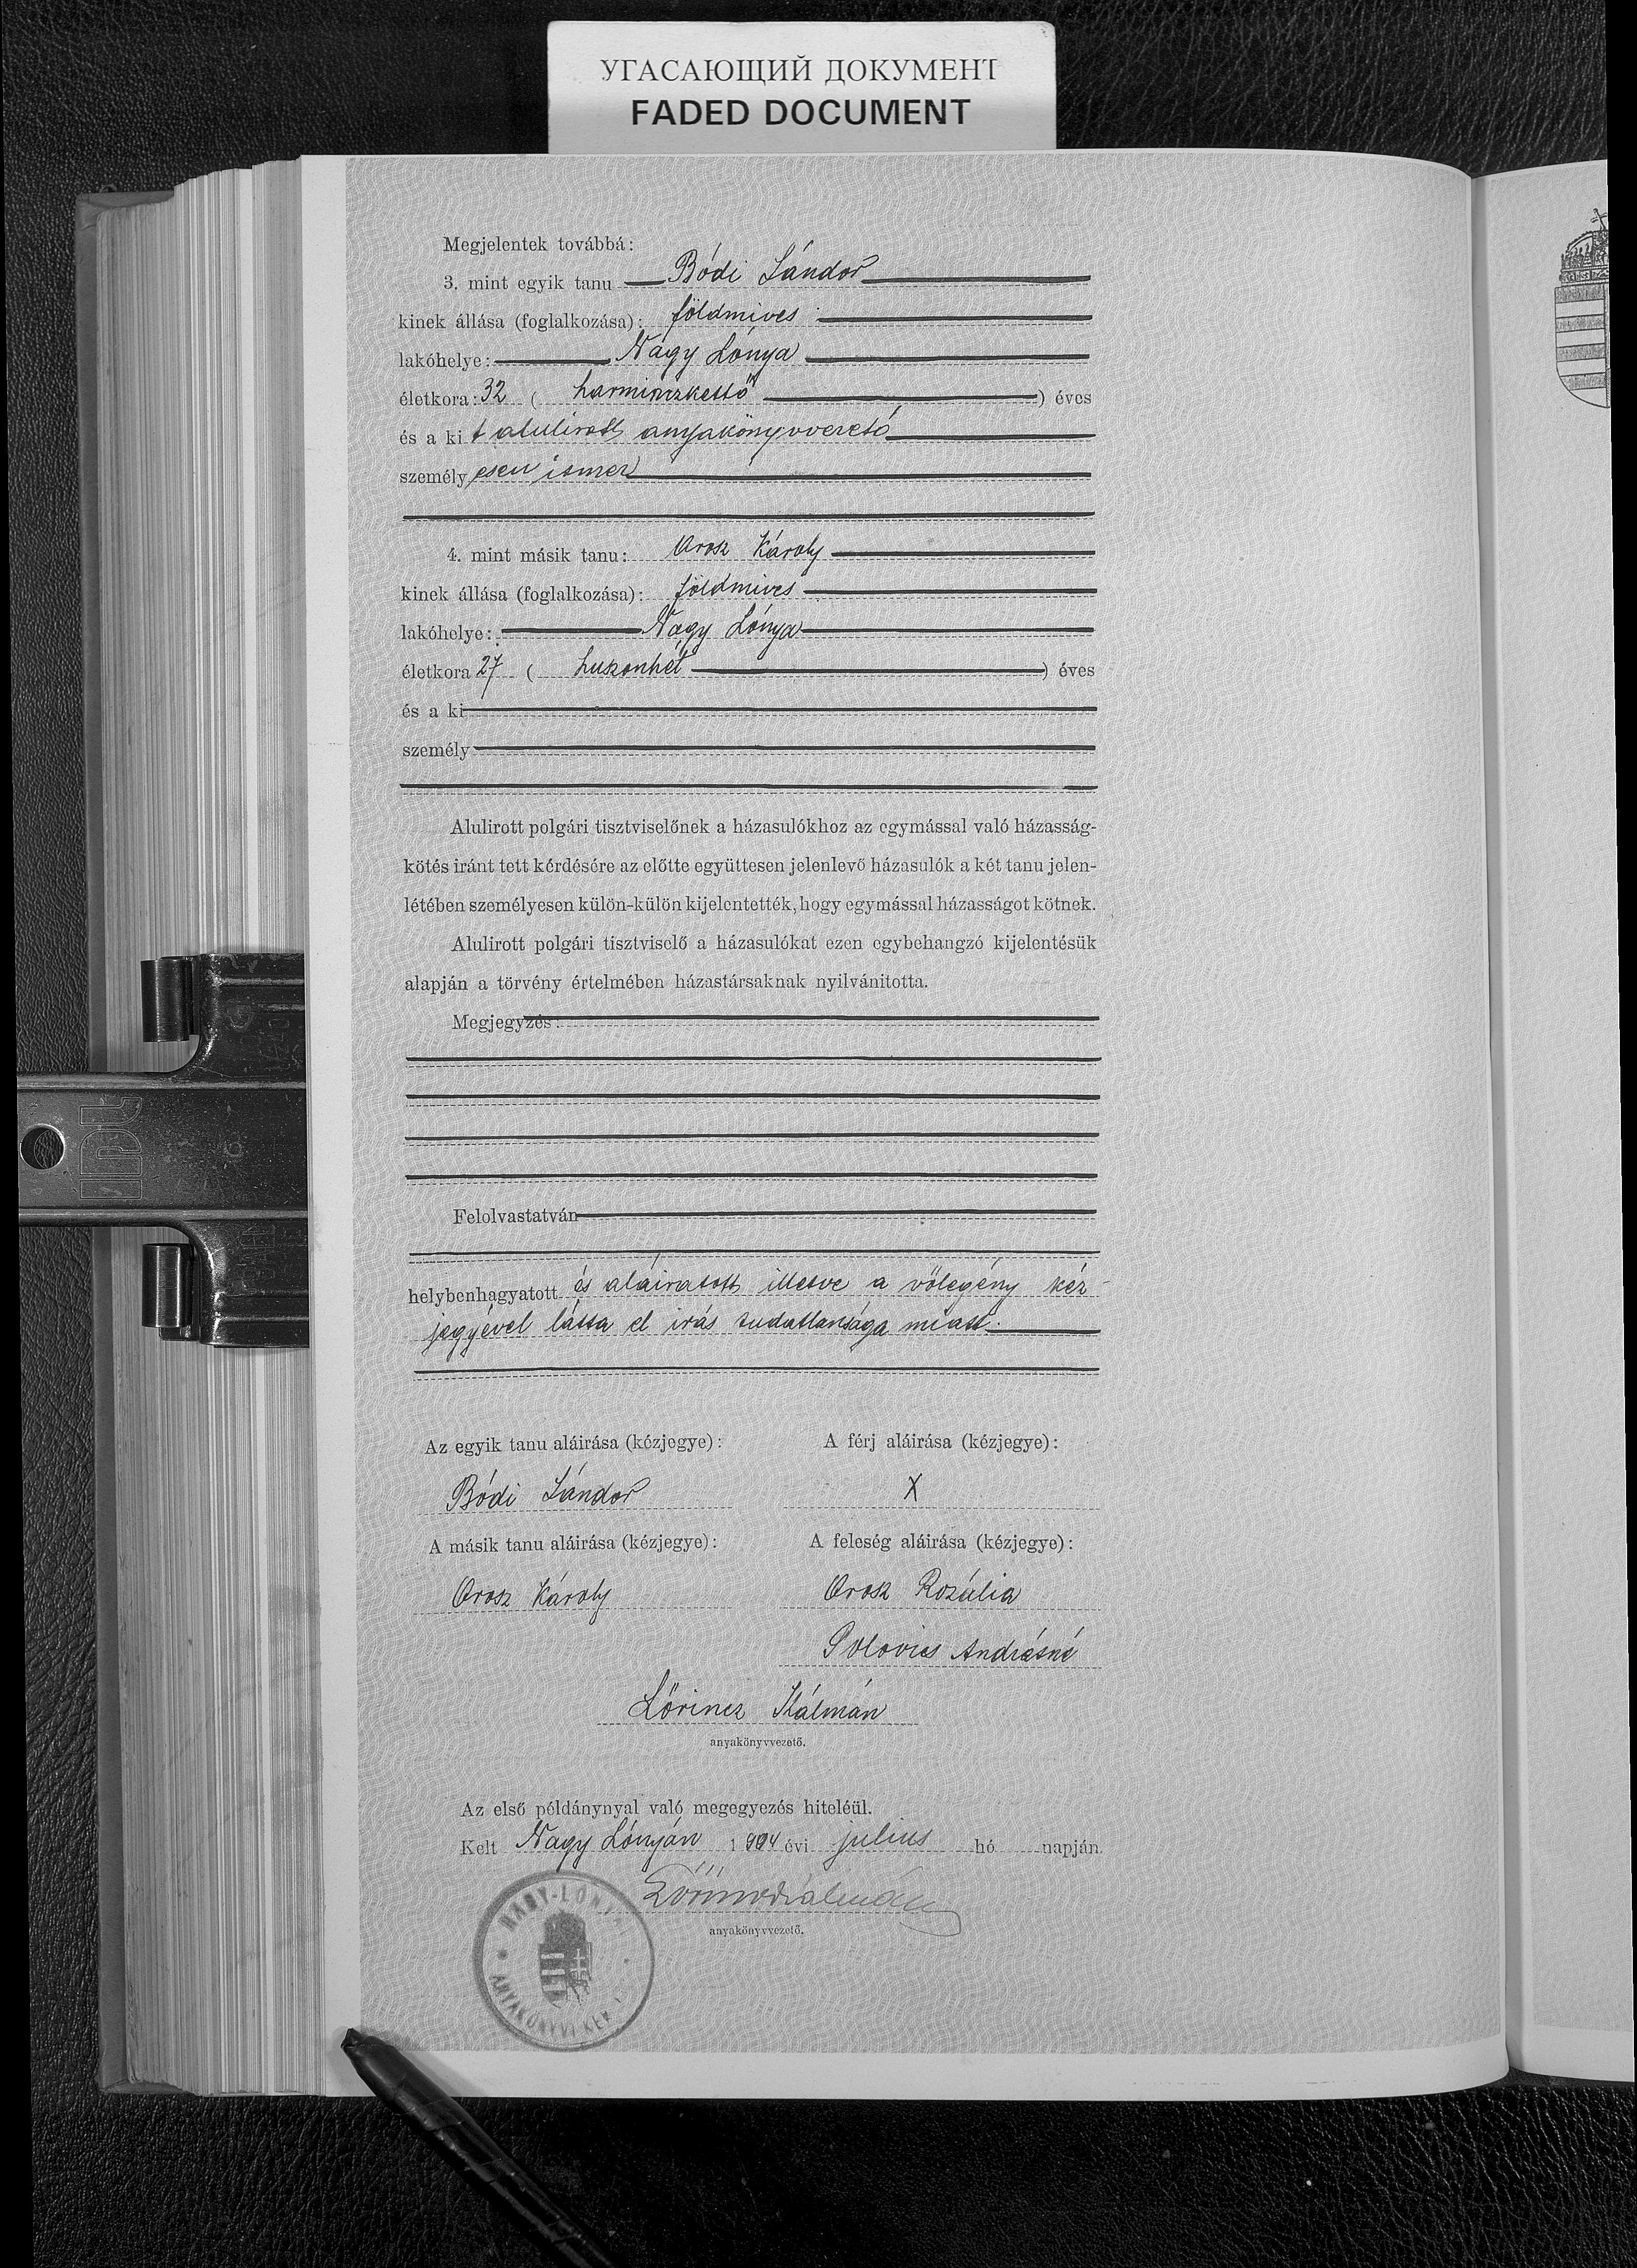 УГАСАЮЩИЙ ДОКУМЕНТ
FADED DOCUMENT
Megjelentek továbbá:
3. mint egyik tanu Bódi Sándor
kinek állása (foglalkozása): földmives
lakóhelye: Nagy Lónya
életkora: 32 ( harminczkettő ) éves
és a ki t alulirott anyakönyvvezető
személy esen ismer
4. mint másik tanu: Orosz Károly
kinek állása (foglalkozása): földmives
lakóhelye: Nagy Lónya
életkora 27 ( huszonhét ) éves
és a ki
személy
Alulirott polgári tisztviselőnek a házasulókhoz az egymással való házasság-
kötés iránt tett kérdésére az előtte együttesen jelenlevő házasulók a két tanu jelen-
létében személyesen külön-külön kijelentették, hogy egymással házasságot kötnek.
Alulirott polgári tisztviselő a házasulókat ezen egybehangzó kijelentésük
alapján a törvény értelmében házastársaknak nyilvánitotta.
Megjegyzés:
Felolvastatván
helybenhagyatott és aláiratott illetve a völegény kéz-
jegyével látta el irás tudatlansága miatt.
Az egyik tanu aláirása (kézjegye): A férj aláirása (kézjegye):
Bódi Sándor X
A másik tanu aláirása (kézjegye): A feleség aláirása (kézjegye):
Orosz Károly Orosz Rozália
Andrásné
Lőrincz Kálmán
anyakönyvvezető.
Az első példánynyal való megegyezés hiteléül.
Kelt Nagy Lónyán 1904 évi julius hó napján.
Lőrincz Kálmán
anyakönyvvezető.
NAGY-LÓNYA
ANYAKÖNYVI KER